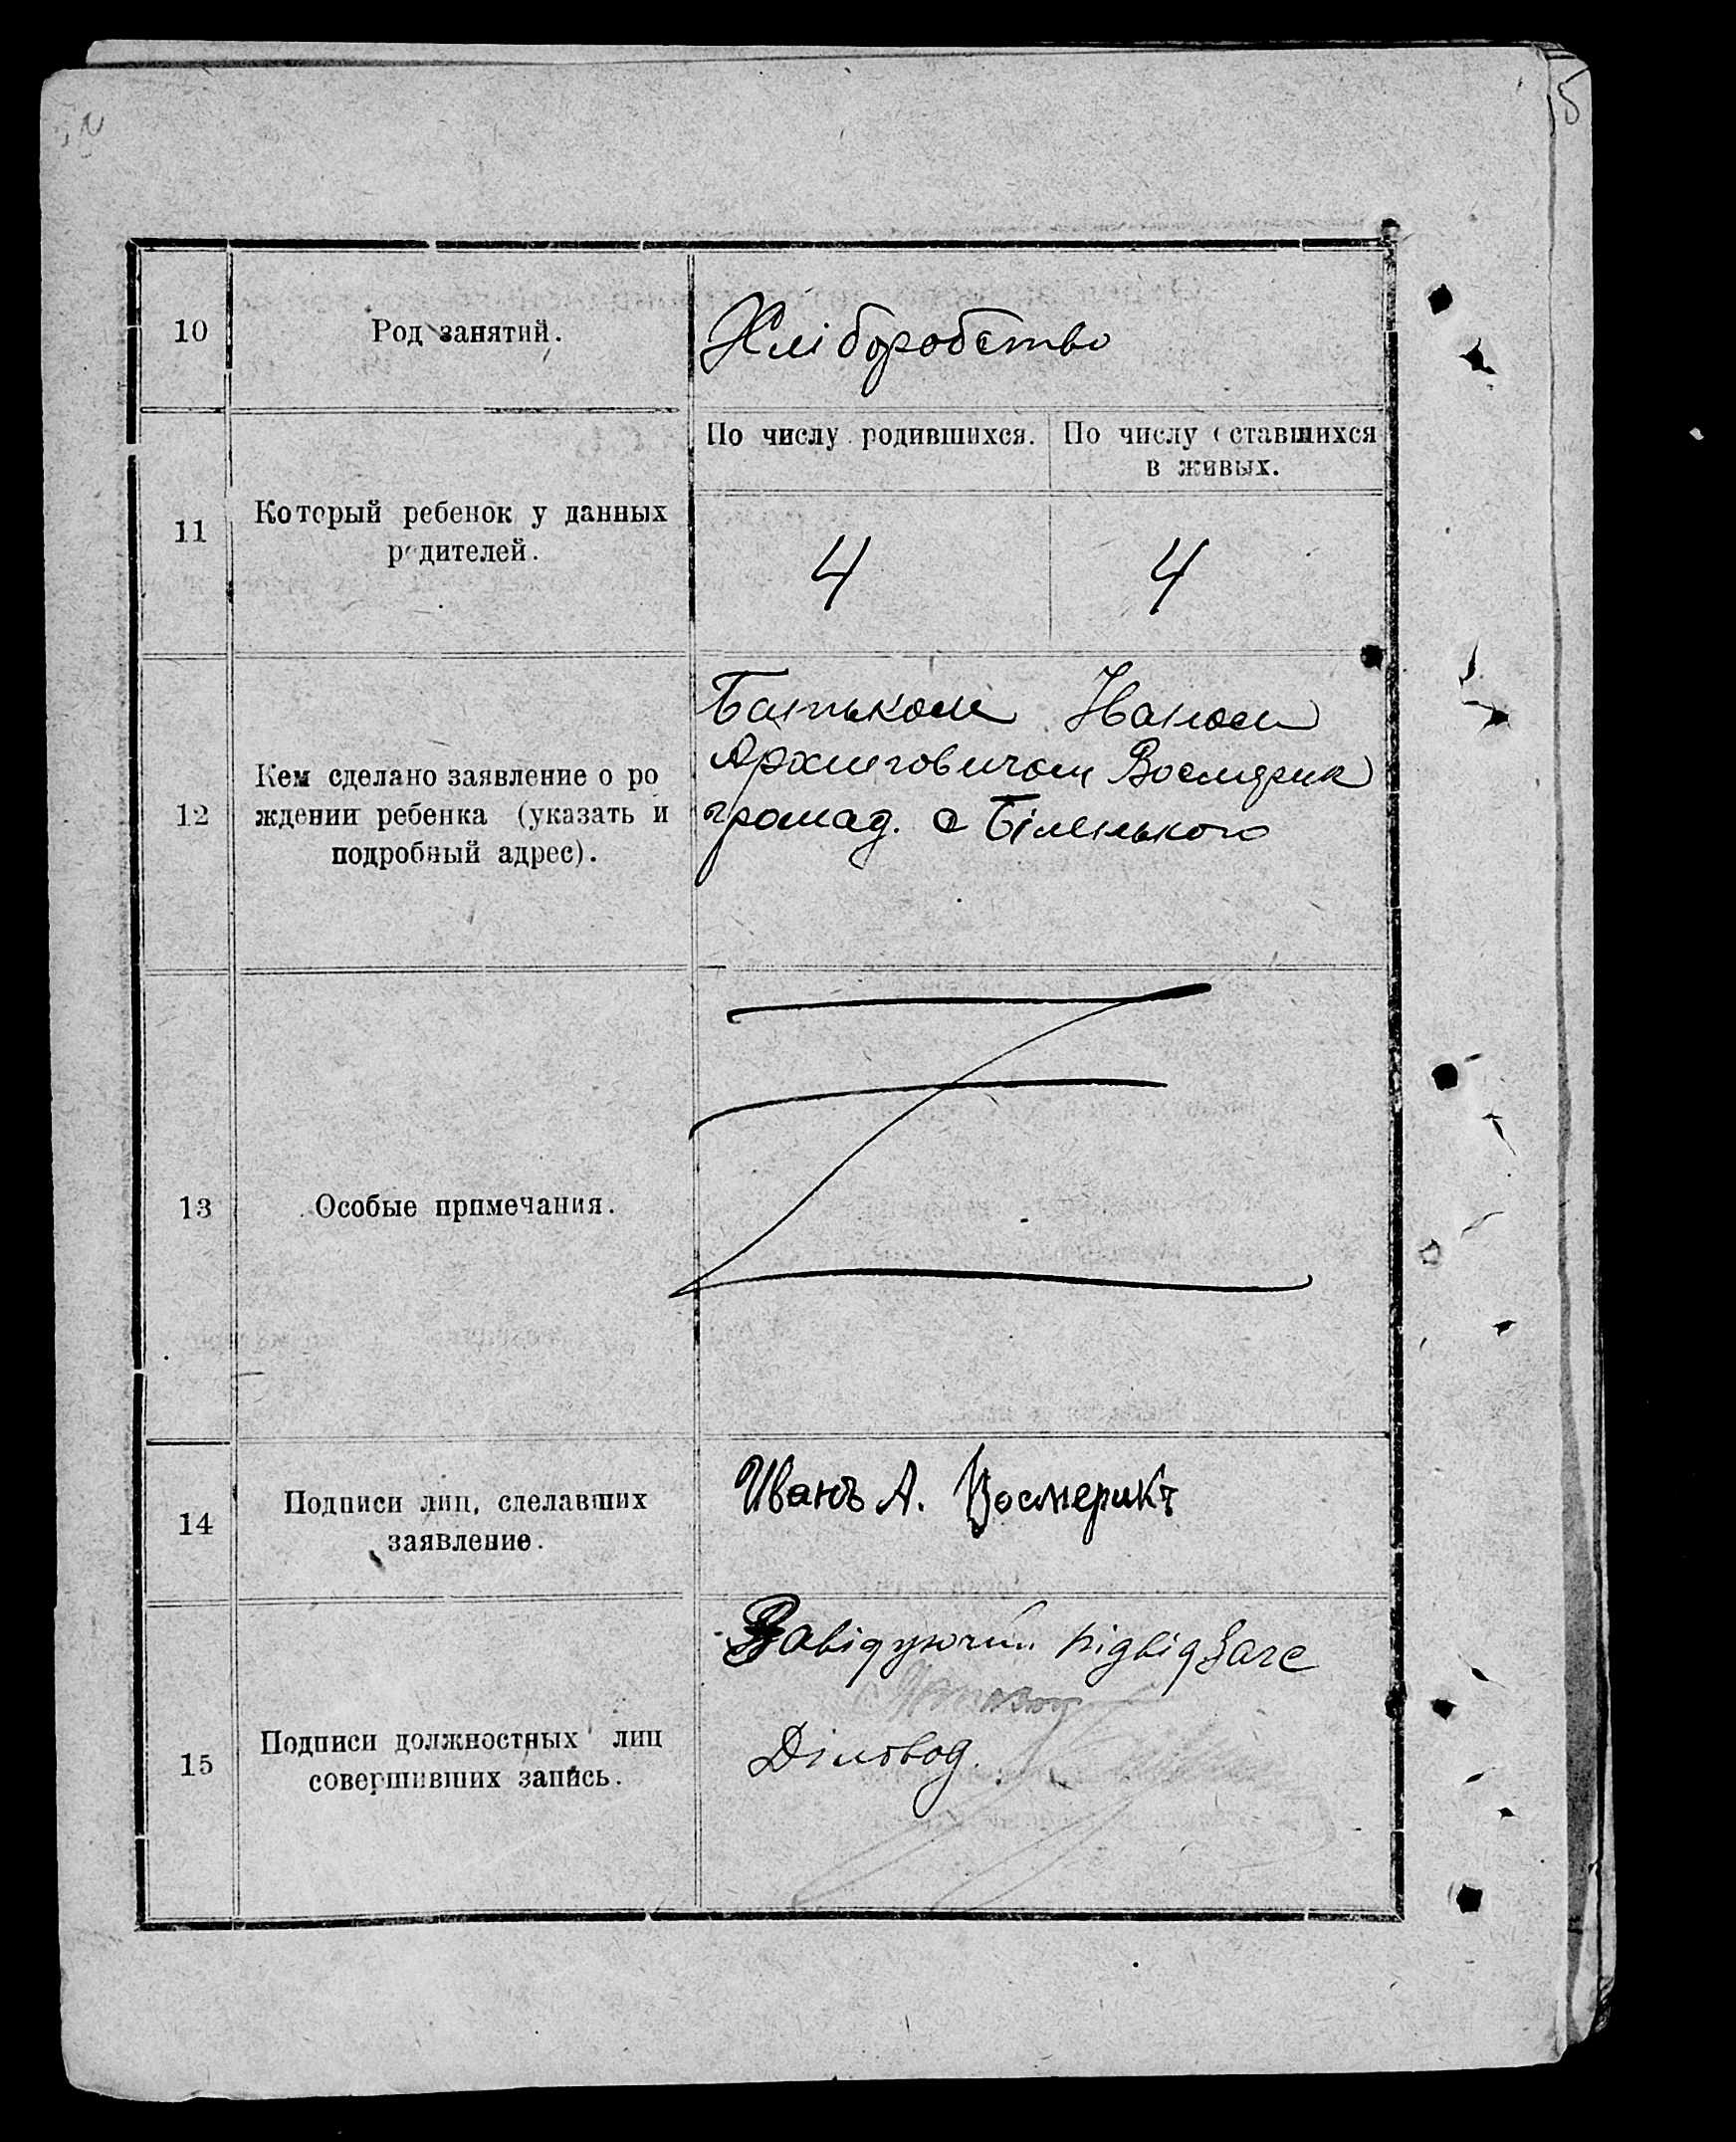 10
Род занятий.
Хліборобство
11
Который ребенок у данных
родителей.
По числу родившихся.
По числу оставшихся
в живых.
4
4
12
Кем сделано заявление о ро
ждении ребенка (указать и
подробный адрес).
Батьком Іваном
Архиповичом Восмерик
громад. с Біленького
13
Особые примечания.
14
Подписи лиц, сделавших
заявление.
Иванъ А. Восмерикъ
15
Подписи должностных лиц
совершивших запись.
Завідуючий підвід Загс
Діловод.